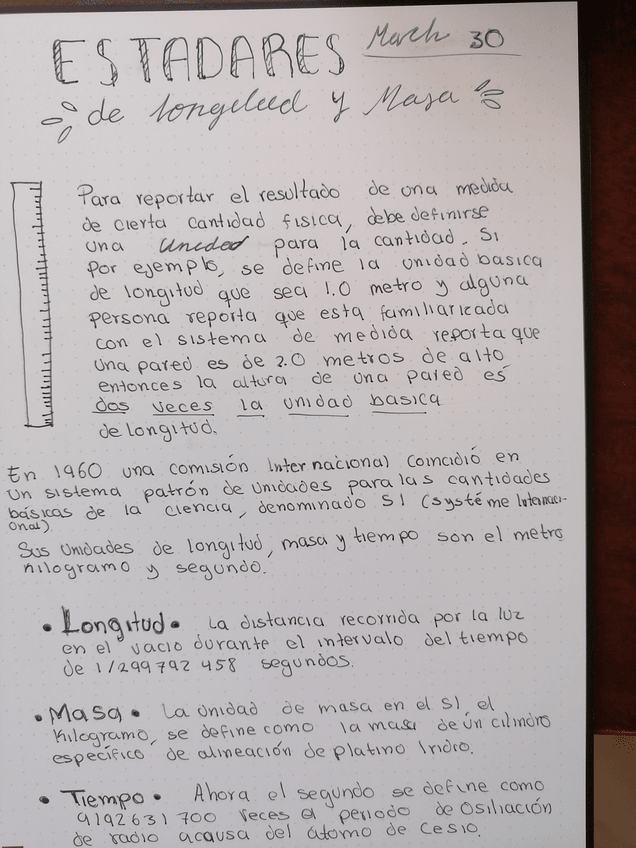 ESTADARES March 30
de longitud y Masa
Para reportar el resultado de una medida
de cierta cantidad fisica, debe definirse
una Unidad para la cantidad. Si
por ejemplo, se define la unidad basica
de longitud que sea 1.0 metro y alguna
persona reporta que esta familiaricada
con el sistema de medida reporta que
una pared es de 2.0 metros de alto
entonces la altura de una pared es
dos veces la unidad basica
de longitud.
En 1960 una comisión Internacional coincidió en
un sistema patrón de unidades para las cantidades
básicas de la ciencia, denominado SI (systéme Internaci-
onal).
Sus unidades de longitud, masa y tiempo son el metro
kilogramo y segundo.
• Longitud • La distancia recorrida por la luz
en el vacio durante el intervalo del tiempo
de 1/299 792 458 segundos.
• Masa • La unidad de masa en el SI, el
Kilogramo, se define como la masa de un cilindro
específico de alineación de platino Iridio.
• Tiempo • Ahora el segundo se define como
9192631 700 veces el periodo de osiliación
de radio acausa del átomo de cesio.